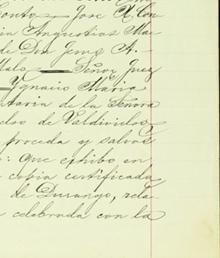 Conto — Jose R. Con
ia Angustias Ma
de Don Genº A.
Malo — Señor Juez
— Ygnacio Maria
taria de la Señora
elso de Valdivielso
proceda y salvos
: que exhibo en
copia certificada
de Durango, rela
celebrada con la